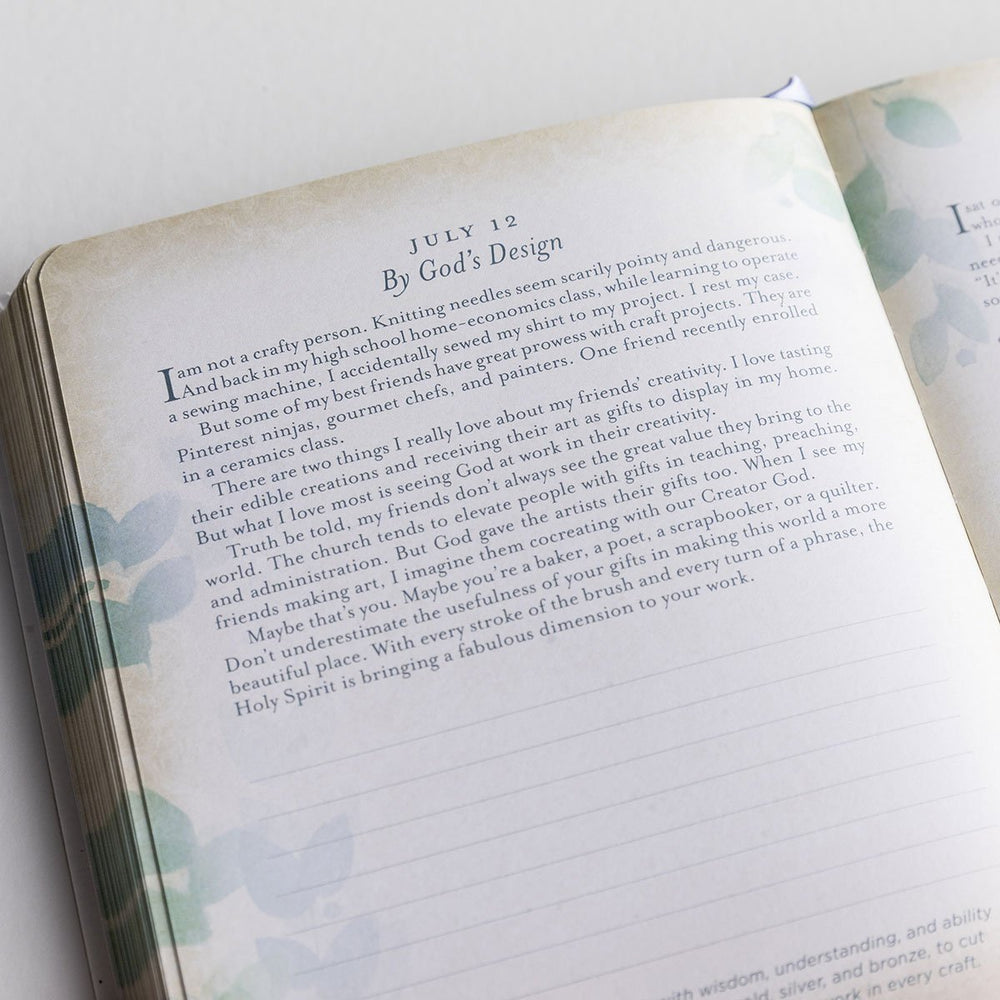 JULY 12
By God's Design
I am not a crafty person. Knitting needles seem scarily pointy and dangerous.
And back in my high school home-economics class, while learning to operate
a sewing machine, I accidentally sewed my shirt to my project. I rest my case.
But some of my best friends have great prowess with craft projects. They are
Pinterest ninjas, gourmet chefs, and painters. One friend recently enrolled
in a ceramics class.
There are two things I really love about my friends' creativity. I love tasting
their edible creations and receiving their art as gifts to display in my home.
But what I love most is seeing God at work in their creativity.
Truth be told, my friends don't always see the great value they bring to the
world. The church tends to elevate people with gifts in teaching, preaching,
and administration. But God gave the artists their gifts too. When I see my
friends making art, I imagine them cocreating with our Creator God.
Maybe that's you. Maybe you're a baker, a poet, a scrapbooker, or a quilter.
Don't underestimate the usefulness of your gifts in making this world a more
beautiful place. With every stroke of the brush and every turn of a phrase, the
Holy Spirit is bringing a fabulous dimension to your work.
with wisdom, understanding, and ability
silver, and bronze, to cut
in every craft.
I sat
I
"It